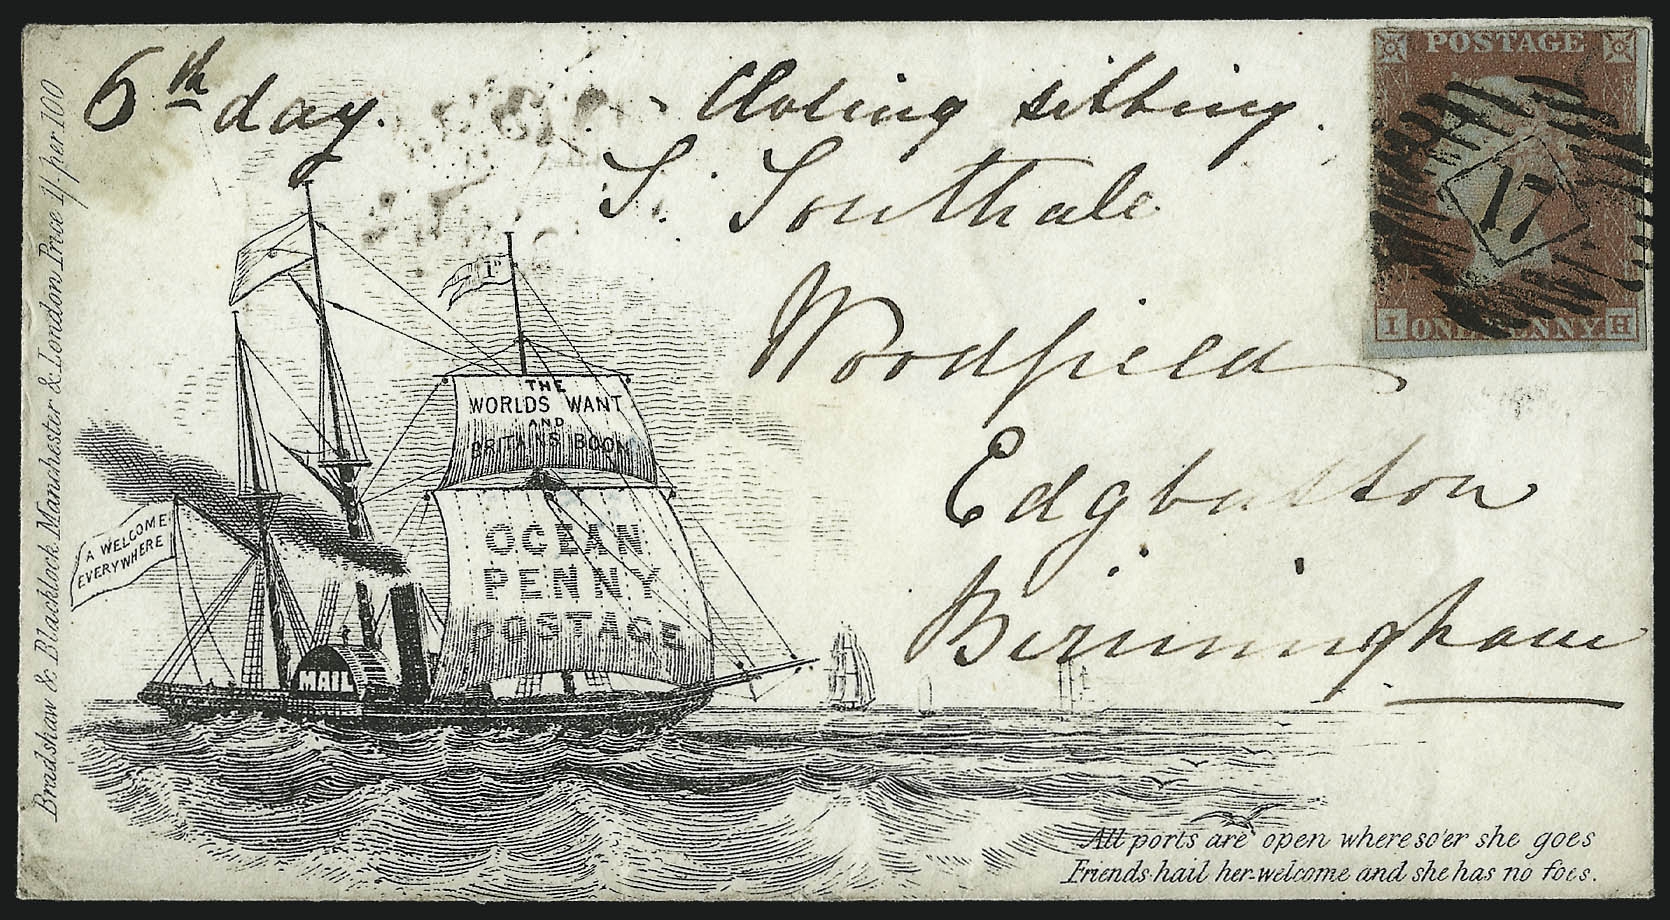 6th day. - Closing sitting.
S. Southall
Woodfield
Edgbaston
Birmingham
POSTAGE
17
I ONE PENNY H
Bradshaw & Blacklock Manchester & London Price 1/- per 100
1D
THE
WORLDS WANT
AND
BRITAINS BOON
OCEAN
PENNY
POSTAGE
A WELCOME
EVERYWHERE
MAIL
All ports are open whereso'er she goes
Friends hail her welcome and she has no foes.